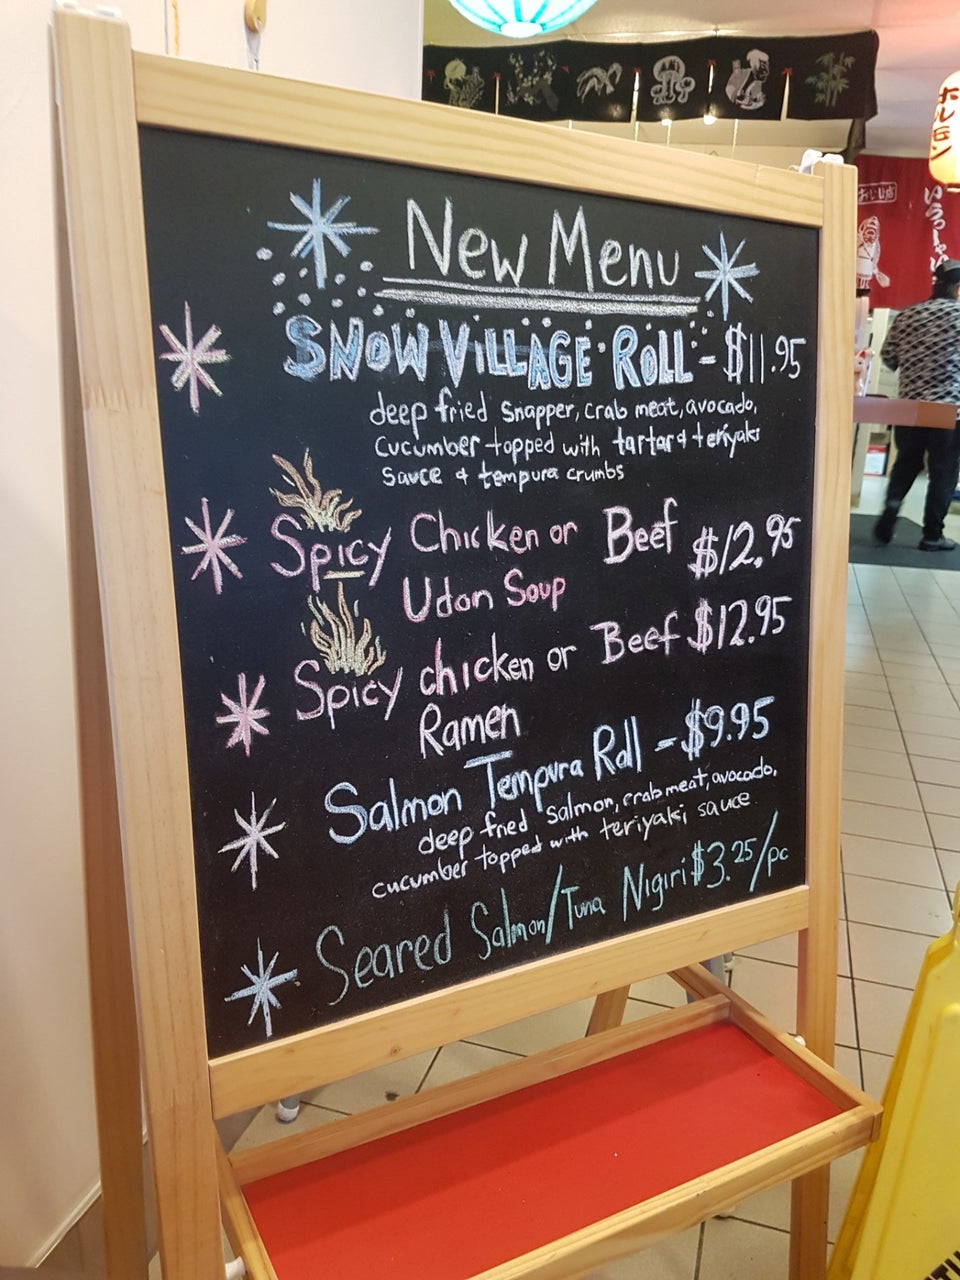 New Menu
SNOW VILLAGE ROLL - $11.95
deep fried snapper, crab meat, avocado,
cucumber topped with tartar & teriyaki
sauce & tempura crumbs
Spicy Chicken or Beef $12.95
Udon Soup
Spicy chicken or Beef $12.95
Ramen
Salmon Tempura Roll - $9.95
deep fried salmon, crab meat, avocado,
cucumber topped with teriyaki sauce
Seared Salmon/Tuna Nigiri $3.25/pc
ホルモン